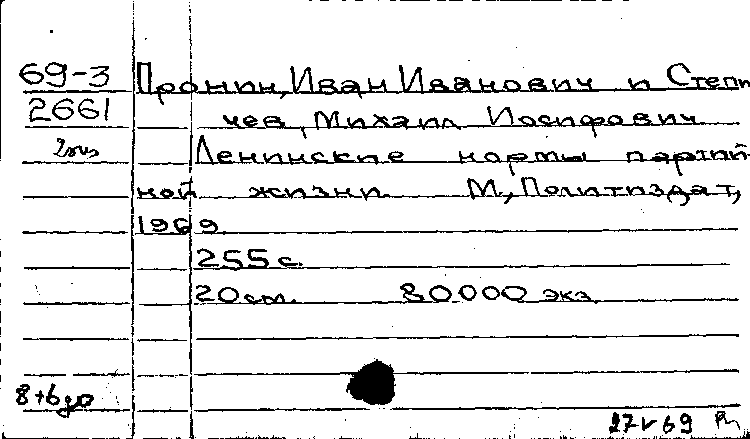 69-3 Пронин, Иван Иванович и Степи
2661 чев, Михаил Иосифович
Ленинские нормы партий
ной жизни М, Политиздат,
1969.
255 с.
20 см. 80000 экз.
8+6
27 V 69